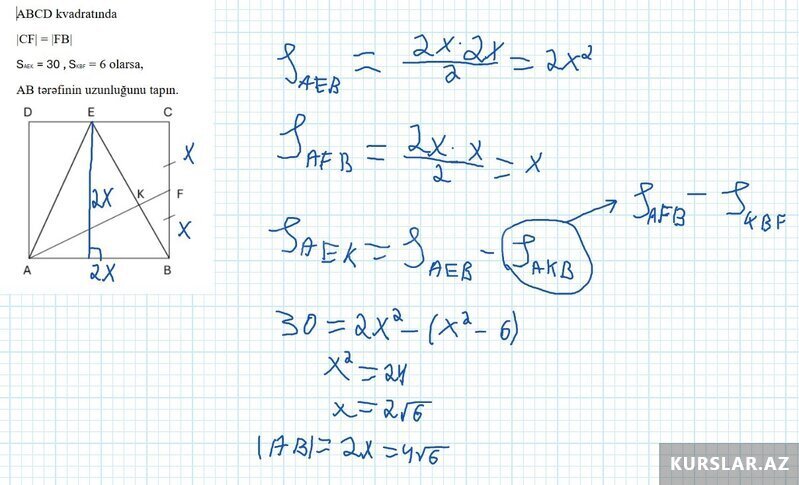 ABCD kvadratında
|CF| = |FB|
SAEK = 30 , SKBF = 6 olarsa,
AB tərəfinin uzunluğunu tapın.
D E C
x
2x K F
x
A 2x B
SAEB = 2x·2x/2 = 2x²
SAFB = 2x·x/2 = x
SAEK = SAEB - SAKB → SAFB - SKBF
30 = 2x² - (x² - 6)
x² = 24
x = 2√6
|AB| = 2x = 4√6
KURSLAR.AZ